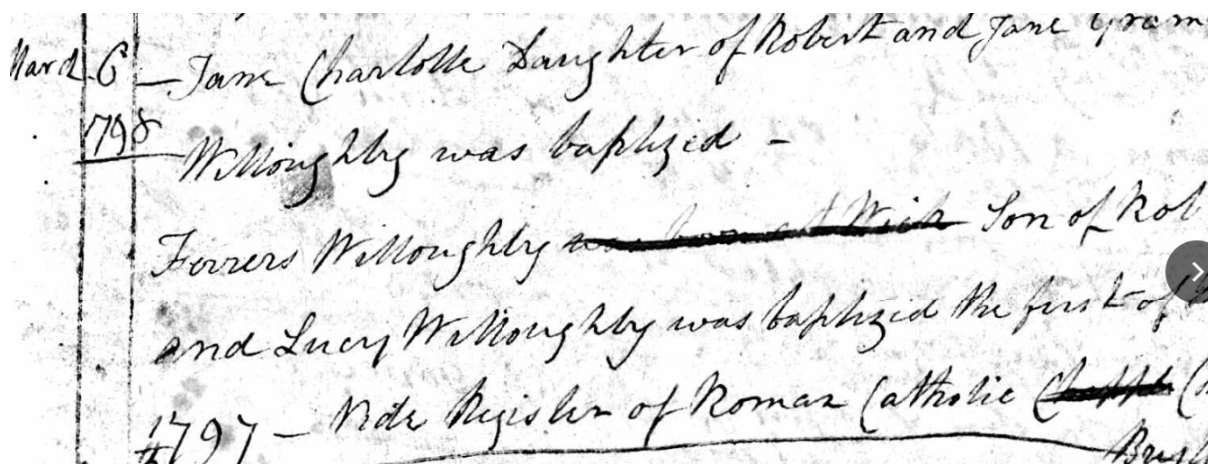 March 6 — Jane Charlotte Daughter of Robert and Jane
1798
Willoughby was baptized —
Ferrers Willoughby was born at Wick Son of Rob
and Lucy Willoughby was baptized the first of
1797 — Vide Register of Roman Catholic